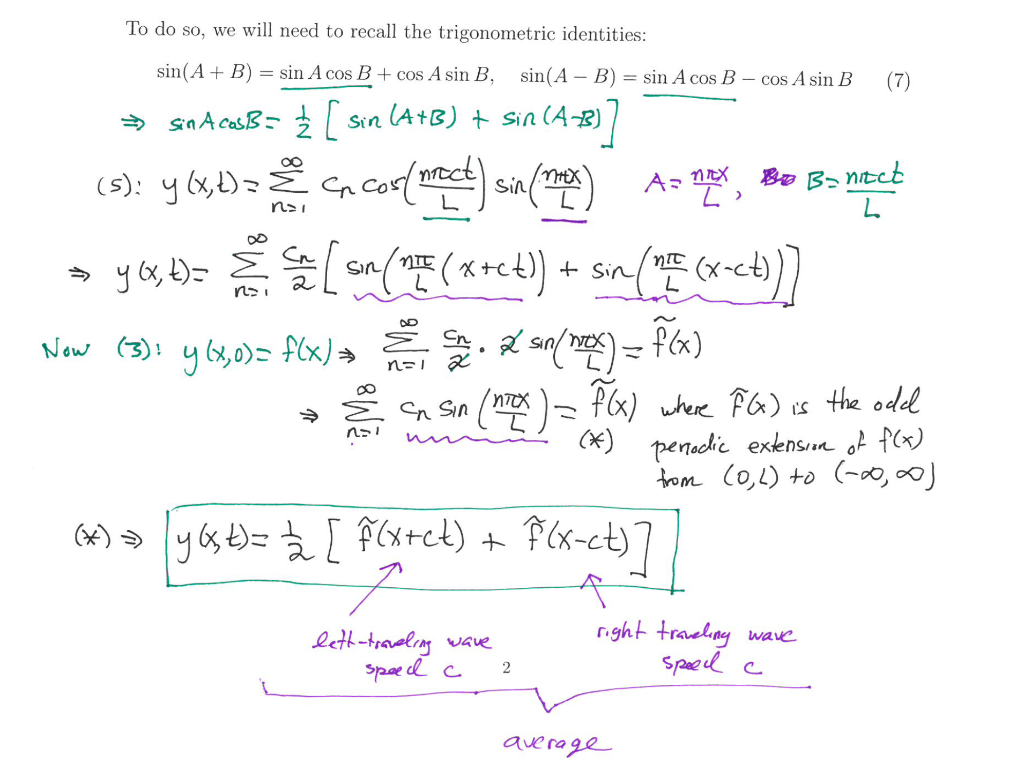 To do so, we will need to recall the trigonometric identities:
sin(A + B) = sin A cos B + cos A sin B, sin(A − B) = sin A cos B − cos A sin B (7)
⇒ sin A cos B = 1/2 [ sin (A+B) + sin (A-B) ]
(5): y(x,t) = ∑_{n=1}^{∞} c_n cos(nπct/L) sin(nπx/L) A = nπx/L, B = nπct/L
⇒ y(x,t) = ∑_{n=1}^{∞} c_n/2 [ sin(nπ/L (x+ct)) + sin(nπ/L (x-ct)) ]
Now (3): y(x,0) = f(x) ⇒ ∑_{n=1}^{∞} c_n/2 · 2 sin(nπx/L) = f̃(x)
⇒ ∑_{n=1}^{∞} c_n sin(nπx/L) = f̃(x) where f̃(x) is the odd
(*) periodic extension of f(x)
from (0,L) to (-∞,∞)
(*) ⇒ y(x,t) = 1/2 [ f̃(x+ct) + f̃(x-ct) ]
left-traveling wave right traveling wave
speed c 2 speed c
average